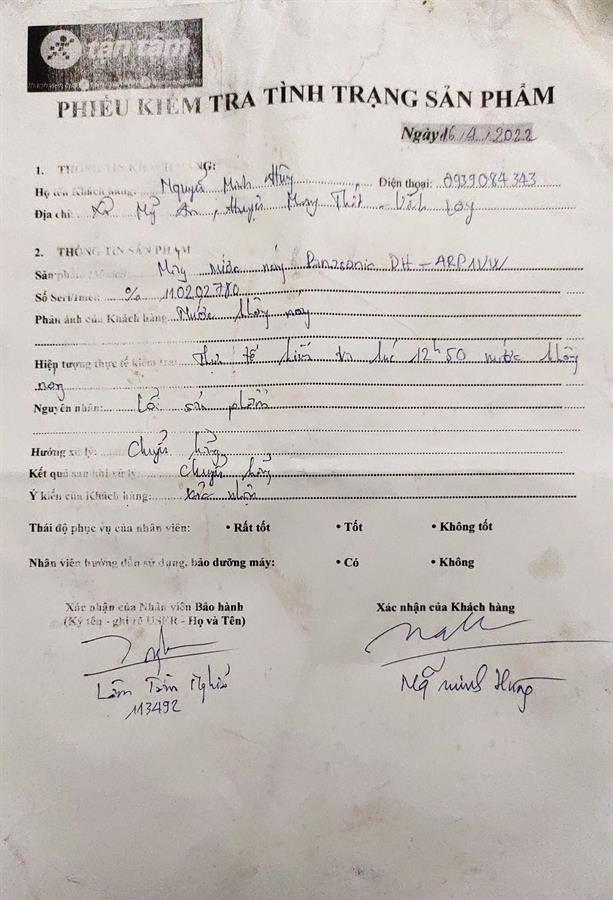 tận tâm
PHIẾU KIỂM TRA TÌNH TRẠNG SẢN PHẨM
Ngày 16/4/2022
1. THÔNG TIN KHÁCH HÀNG:
Họ tên Khách hàng: Nguyễn Minh Hùng Điện thoại: 0939084343
Địa chỉ: Xã Mỹ An, Huyện Mang Thít, Vĩnh Long
2. THÔNG TIN SẢN PHẨM
Sản phẩm Máy nước nóng Panasonic DH-4RP1VW
Số Seri/Imei: 110202780
Phản ánh của Khách hàng: Nước không nóng
Hiện tượng thực tế kiểm tra: Thực tế kiểm tra lúc 12h50 nước không
nóng
Nguyên nhân: Lỗi sản phẩm
Hướng xử lý: Chuyển hãng
Kết quả sau khi xử lý: Chuyển hãng
Ý kiến của Khách hàng: xác nhận
Thái độ phục vụ của nhân viên: • Rất tốt • Tốt • Không tốt
Nhân viên hướng dẫn sử dụng, bảo dưỡng máy: • Có • Không
Xác nhận của Nhân viên Bảo hành Xác nhận của Khách hàng
(Ký tên - ghi rõ USER - Họ và Tên)
Lâm Tấn Nghĩa
113492
minh Hùng